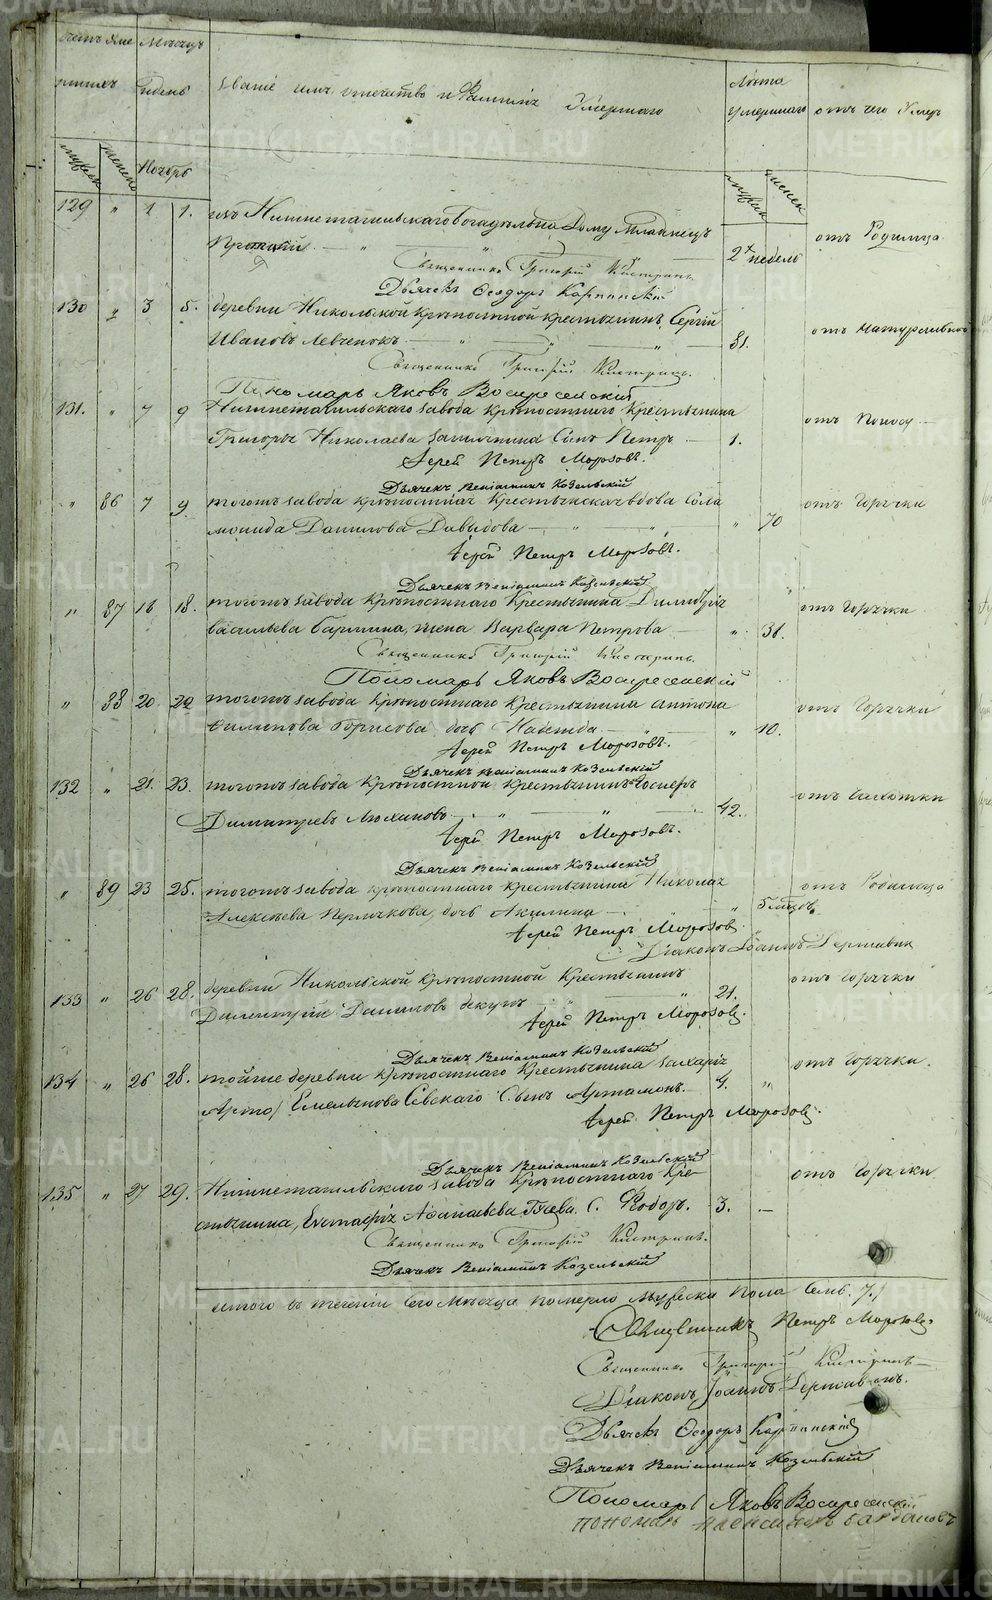 Счетъ уме Мѣсяцъ
ршихъ и день Званіе имя отечество и Фамилія Умершаго Лѣта Умершаго отъ чего Умеръ
мужеск женско Ноябрь мужеск женск
129 " 1 1. изъ Нижнетагильскаго Богадѣльна Дому младенецъ отъ Родимца
2 х недель
Священникъ Григорій
Дьячекъ Ѳеодоръ Карпинскій
130 " 3 5. деревни Никольской крѣпостной крестьянинъ Сергій
Ивановъ Левченокъ 81. отъ натуральной
Священникъ Григорій
Пономарь Яковъ Воскресенскій
131. " 7 9 Нижнетагильскаго завода крѣпостнаго крестьянина
Григорья Николаева сынъ Петръ 1. отъ поносу
Іерей Петръ Морозовъ.
Дьячекъ Веніаминъ Козельскій
" 86 7 9 тогожъ завода крѣпостная крестьянская вдова Соло
монида Данилова Давыдова " 70 отъ горячки
Іерей Петръ Морозовъ.
Дьячекъ Веніаминъ Козельскій
" 87 16 18. тогожъ завода крѣпостнаго крестьянина Димитрія
Васильева жена Варвара Петрова " 31. отъ горячки
Священникъ Григорій
Пономарь Яковъ Воскресенскій
" 88 20 22 тогожъ завода крѣпостнаго крестьянина Антона
Филипова Борисова дочь Надежда " 10. отъ горячки
Іерей Петръ Морозовъ.
Дьячекъ Веніаминъ Козельскій
132 " 21. 23. тогожъ завода крѣпостной крестьянинъ
Димитріевъ 42. отъ чахотки
Іерей Петръ Морозовъ.
Дьячекъ Веніаминъ Козельскій
" 89 23 25. тогожъ завода крѣпостнаго крестьянина Николая
Алексѣева дочь Акилина " 5 отъ Родимца
Іерей Петръ Морозовъ
Діаконъ Іоаннъ Державин
133 " 26 28. деревни Никольской крѣпостной крестьянинъ
Димитрій Даниловъ 21. отъ горячки
Іерей Петръ Морозовъ.
Дьячекъ Веніаминъ Козельскій
134 " 26 28. тойже деревни крѣпостнаго крестьянина Захарія
Емельянова Сынъ Артамонъ. 4. " отъ горячки.
Іерей Петръ Морозовъ.
Дьячекъ Веніаминъ Козельскій
135 " 27 29. Нижнетагильскаго завода крѣпостнаго кре
стьянина, Евстафія Аѳанасьева С. Ѳедоръ. 3. отъ горячки
Священникъ Григорій
Дьячекъ Веніаминъ Козельскій
итого въ теченіи Сего мѣсяца померло мужеска пола Семь. 7.
Священникъ Петръ Морозовъ.
Священникъ Григорій
Діаконъ Іоаннъ Державинъ.
Дьячекъ Ѳеодоръ Карпинскій
Дьячекъ Веніаминъ Козельскій
Пономарь Яковъ Воскресенскій
пономарь Александръ
METRIKI.GASO-URAL.RU